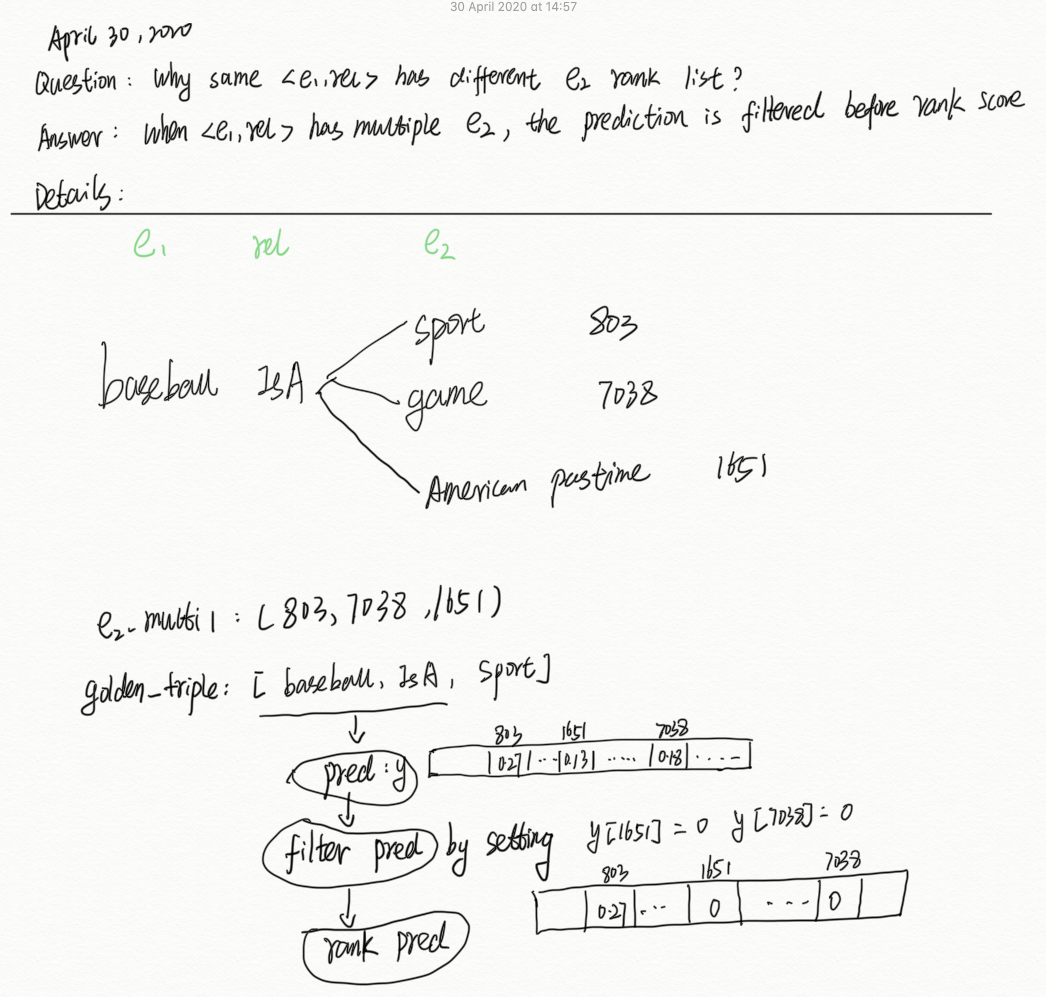 30 April 2020 at 14:57
April 30, 2020
Question: Why same <e1, rel> has different e2 rank list?
Answer: When <e1, rel> has multiple e2, the prediction is filtered before rank score
Details:
e1 rel e2
sport 803
baseball IsA game 7038
American pastime 1651
e2_multi1: (803, 7038, 1651)
golden_triple: [baseball, IsA, sport]
803 1651 7038
pred: y 0.27 ... 0.13 ..... 0.18 ....
filter pred by setting y[1651] = 0 y[7038] = 0
803 1651 7038
0.27 ... 0 .... 0
rank pred